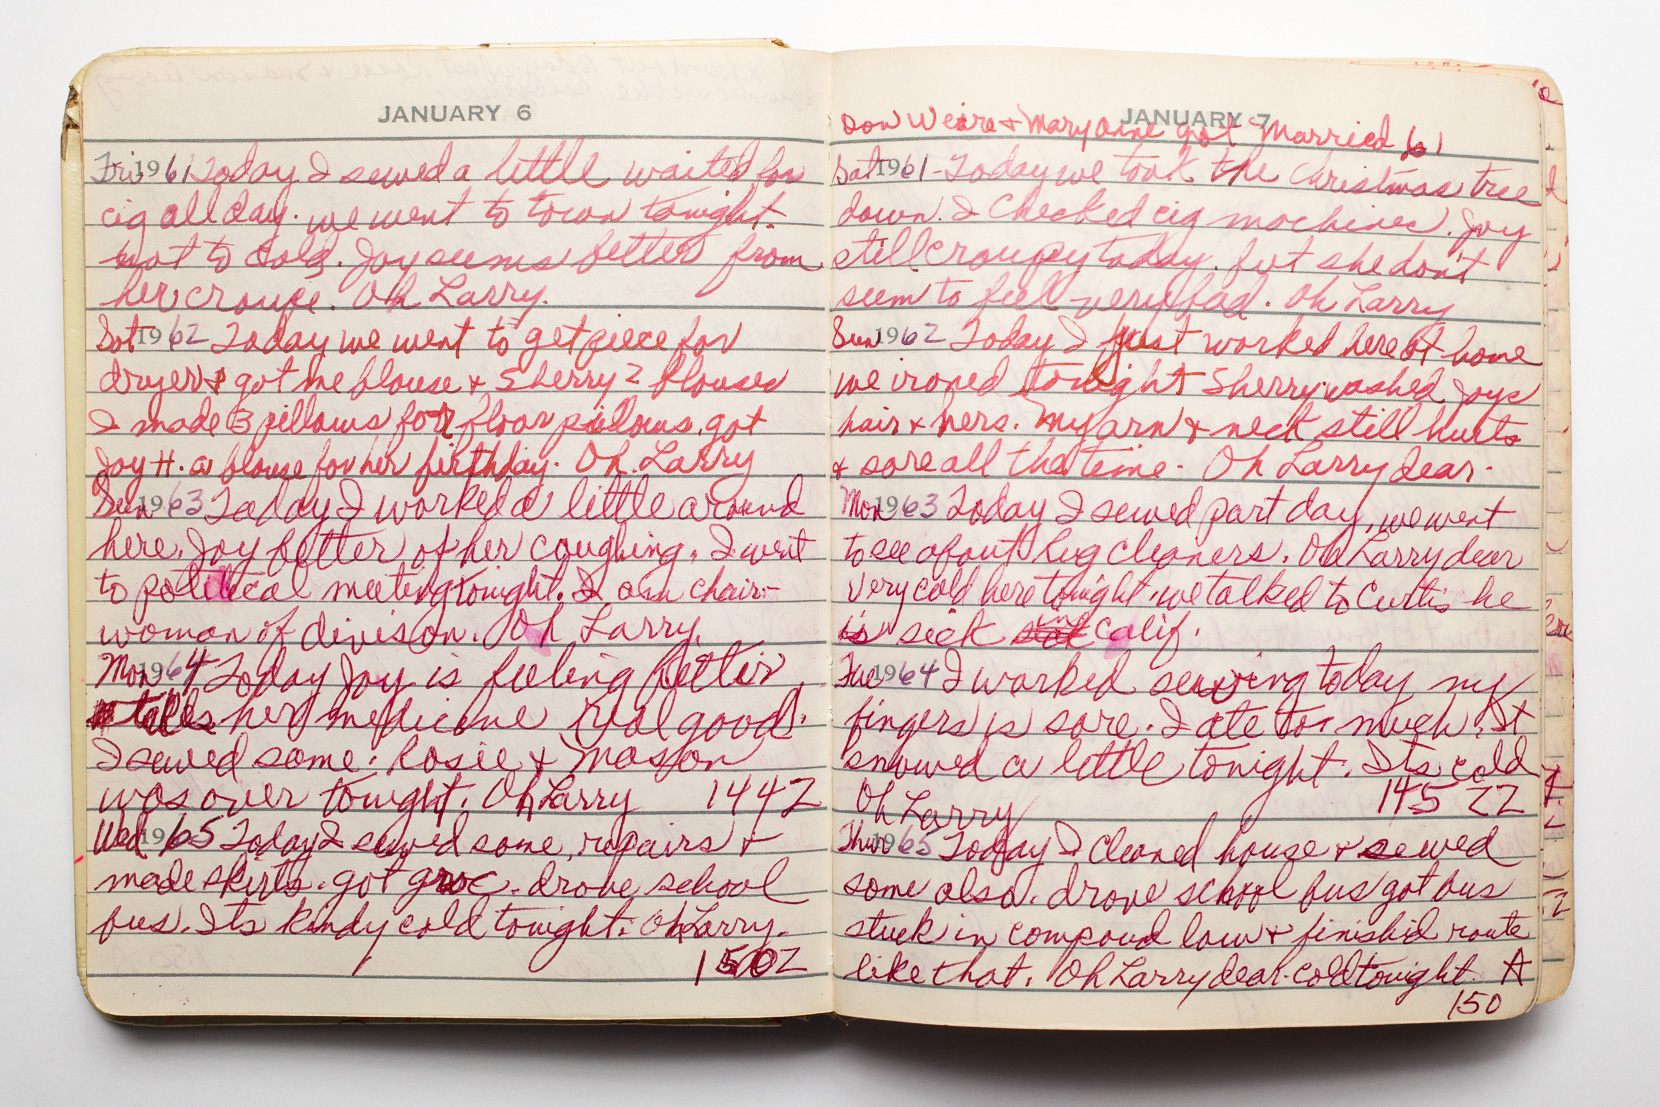 JANUARY 6
Fri 1961 Today I sewed a little waited for
cig all day. we went to town tonight.
not to cold. Joy seems better from
her croupe. Oh Larry.
Sat 1962 Today we went to get piece for
dryer & got me blouse & Sherry 2 blouses
I made 3 pillows for floor pillows. got
Joy H. a blouse for her birthday. Oh Larry
Sun 1963 Today I worked a little around
here. Joy better of her coughing. I went
to political meeting tonight. I am chair-
woman of divison. Oh Larry.
Mon 1964 Today Joy is feeling better
takes her medicine real good.
I sewed some. Rosie & Masson
was over tonight. Oh Larry 144 2
Wed 1965 Today I sewed some, repairs &
made skirts. got groc. drove school
bus. Its kindy cold tonight. Oh Larry.
150 2
JANUARY 7
Don Weire & Mary Anne got Married 61
Sat 1961 - Today we took the Christmas tree
down. I checked cig machines. Joy
still croupey today. but she don't
seem to feel very bad. Oh Larry
Sun 1962 Today I just worked here at home
we ironed tonight Sherry washed Joys
hair & hers. My arm & neck still hurts
& sore all the time. Oh Larry dear.
Mon 1963 Today I sewed part day, we went
to see about Rug cleaners. Oh Larry dear
very cold here tonight. we talked to Curtis he
is sick in Calif.
Tue 1964 I worked sewing today my
fingers is sore. I ate too much. It
snowed a little tonight. Its cold
Oh Larry 145 22
Thur 1965 Today I cleaned house & sewed
some also. drove school bus got bus
stuck in compoud low & finish'd route
like that. Oh Larry dear. cold tonight. A
150